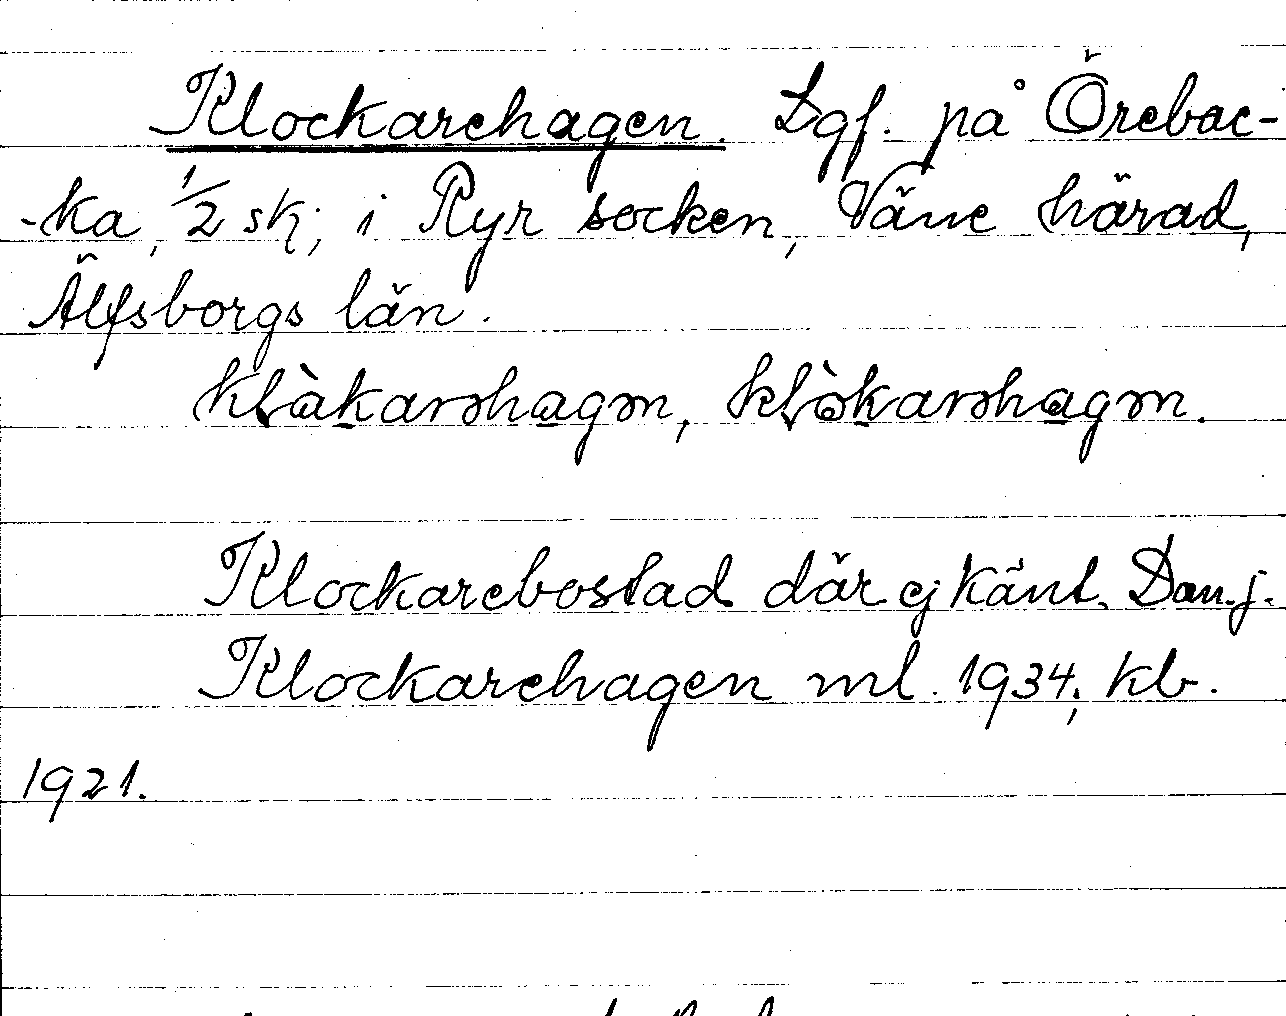 Klockarehagen. Lgf. på Örebac-
-ka, 1/2 sk; i Ryr socken, Väne härad,
Älfsborgs län.
klàkarəhagən, klòkarəhagən.
Klockarebostad där ej känt. Dan. j.
Klockarehagen ml. 1934; kb.
1921.